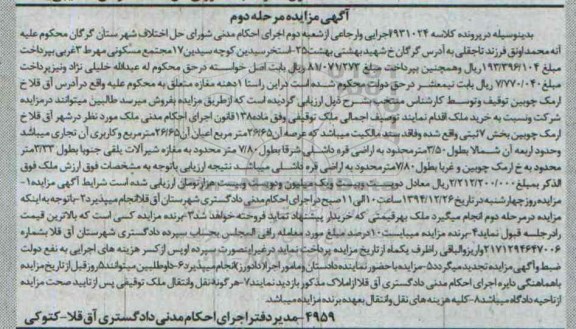 آگهی مزایده مرحله دوم
بدینوسیله در پرونده کلاسه ۹۳۱۰۲۴ اجرایی وارجاعی از شعبه دوم اجرای احکام مدنی شورای حل اختلاف شهرستان گرگان محکوم علیه
آنه محمد اونق فرزند تاجقلی به آدرس گرگان خ شهید بهشتی بهشت ۳۵-استخر سیدین کوچه سیدین ۱۷ مجتمع مسکونی مهرط ۳ غربی بپرداخت
مبلغ ۱۹۳/۳۹۶/۱۰۴ ریال وهمچنین بپرداخت مبلغ ۸۸/۰۷۱/۲۷۳ ریال بابت اصل خواسته در حق محکوم له عبدالله خلیلی نژاد ونیز پرداخت
مبلغ ۷/۷۷۰/۰۴۰ ریال بابت نیمعشر در حق دولت محکوم شده است در این راستا ۱ دهنه مغازه متعلق به محکوم علیه واقع در آدرس آق قلا خ
ارمک چوبین توقیف وتوسط کارشناس منتخب بشرح ذیل ارزیابی گردیده است که از طریق مزایده بفروش میرسد طالبین میتوانند در مزایده
شرکت ونسبت به خرید ملک اقدام نمایند توصیف اجمالی ملک توقیفی وفق ماده ۱۳۸ قانون اجرای احکام مدنی ملک مورد نظر در شهر آق قلا خ
ارمک چوبین بخش ۷ ثبتی واقع شده وفاقد سند مالکیت میباشد که عرصه آن ۲۶/۶۵ متر مربع اعیان آن ۲۶/۶۵ مترمربع وکاربری آن تجاری میباشد
وحدود اربعه آن شمالا بطول ۳/۵۰ متر محدود به اراضی قره داشلی شرقا بطول ۷/۸۰ متر محدود به مغازه شیرآلات یلقی جنوبا بطول ۳/۳۳ متر
محدود به خ ارمک چوبین و غربا بطول ۷/۸۰ متر محدود به اراضی قره داشلی میباشد نتیجه ارزیابی باتوجه به مشخصات فوق ارزش ملک فوق
الذکر بمبلغ ۲/۲۱۲/۲۰۰/۰۰۰ ریال معادل دویست و بیست ویک میلیون ودویست وبیست هزار تومان ارزیابی شده است شرایط آگهی مزایده ۱-
مزایده روز چهارشنبه در تاریخ ۱۳۹۴/۱۲/۲۶ ساعت ۱۰ الی ۱۱ صبح در اجرای احکام مدنی دادگستری شهرستان آق قلا انجام میپذیرد ۲-باتوجه به اینکه
مزایده در مرحله دوم انجام میگیرد ملک بهر قیمتی که خریدار پیشنهاد نماید فروخته خواهد شد ۳-برنده مزایده کسی است که بالاترین قیمت
را در جلسه قبول نماید ۴-برنده مزایده میبایست ۱۰ درصد مبلغ مورد معامله رافی المجلس بحساب سپرده دادگستری شهرستان آق قلا بشماره
۲۱۷۱۲۹۴۶۴۷۰۰۶ واریز والباقی راظرف یکماه از تاریخ مزایده پرداخت نماید در غیر اینصورت سپرده اوپس از کسر هزینه های اجرایی به نفع دولت
ضبط وآگهی مزایده تجدید میگردد ۵-مزایده با حضور نماینده دادستان ومامور اجرا (دادورز) انجام میپذیرد ۶-داوطلبین میتوانند ۵ روز قبل از تاریخ مزایده
باهماهنگی دایره اجرای احکام مدنی دادگستری آق قلا از املاک مذکور بازدید نمایند ۷-هر گونه نقل وانتقال ملک توقیفی پس از تایید صحت مزایده
از ناحیه دادگاه میباشد ۸-کلیه هزینه های نقل وانتقال بعهده برنده مزایده میباشد.
۴۹۵۹-مدیر دفتر اجرای احکام مدنی دادگستری آق قلا-کتوکی